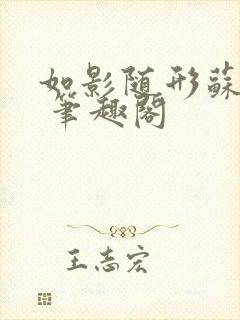 如影随形蘇
筆趣阁
王志宏